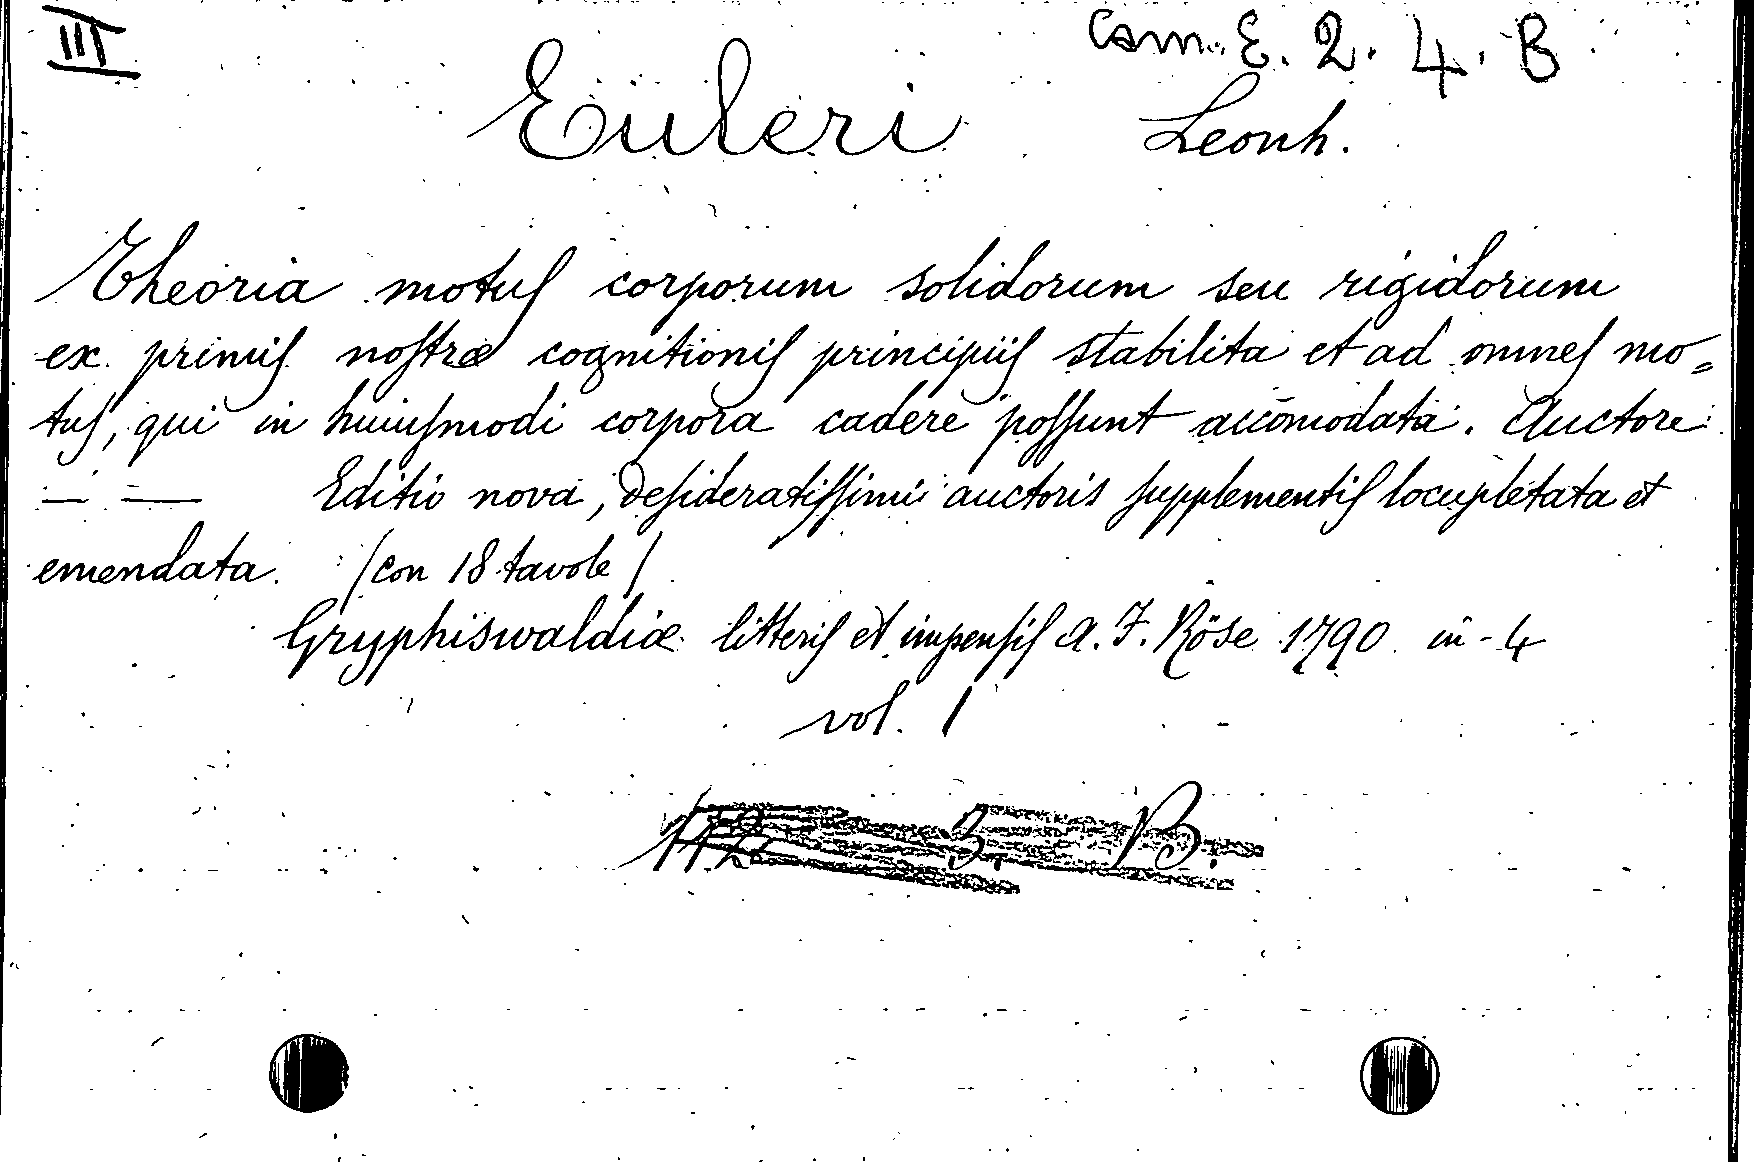 III
Cam. E. 2. 4. B
Euleri Leonh.
Theoria motuſ corporum solidorum seu rigidorum
ex primiſ noſtræ cognitioniſ principiiſ stabilita et ad omneſ mo=
tuſ, qui in huiuſmodi corpora cadere poſſunt accōmodata. Auctore
— — Editio nova, deſideratiſſimi auctoris ſupplementiſ locupletata et
emendata. (con 18 tavole)
Gryphiswaldiæ litteriſ et impenſiſ A. F. Röse 1790 in-4
vol. 1
112 3. B.